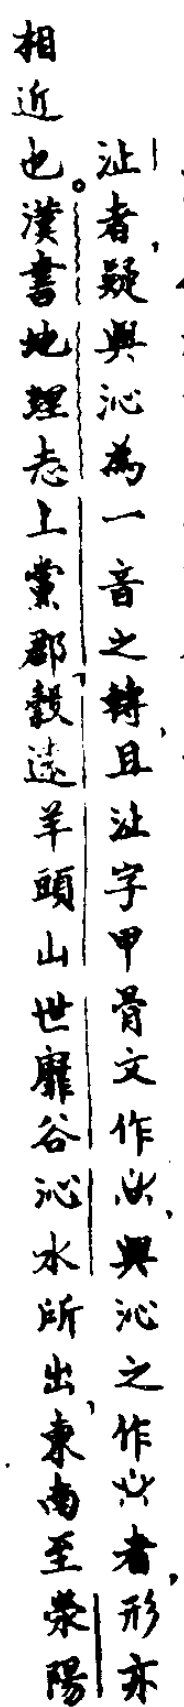 沚者,疑與沁為一音之轉,且沚字甲骨文作,與沁之作者,形亦
相近也。漢書地理志上黨郡,穀遠羊頭山世靡谷沁水所出,東南至滎陽